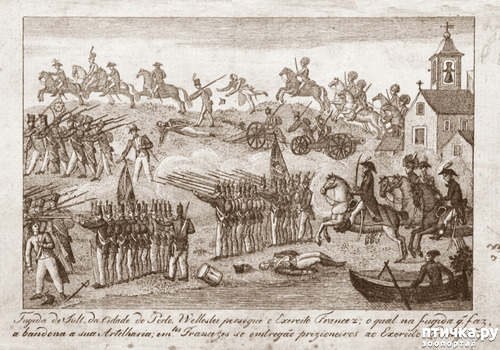 Fugida de Sult, da Cidade do Porto, Welleslei persegue o Exercito Francez; o qual na fugida q. faz
abandona a sua Artelharia, em tes Francezes se entregão prizioneiros ao Exercito
птичка.ру
зоопортал